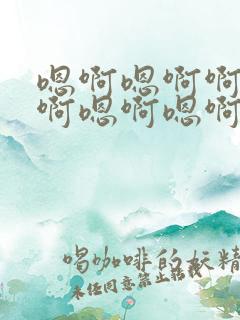 嗯啊嗯啊啊
啊嗯啊嗯啊
喝咖啡的妖精
未经同意禁止转载